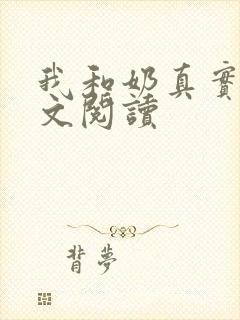 我和奶真實
文閱讀
背夢